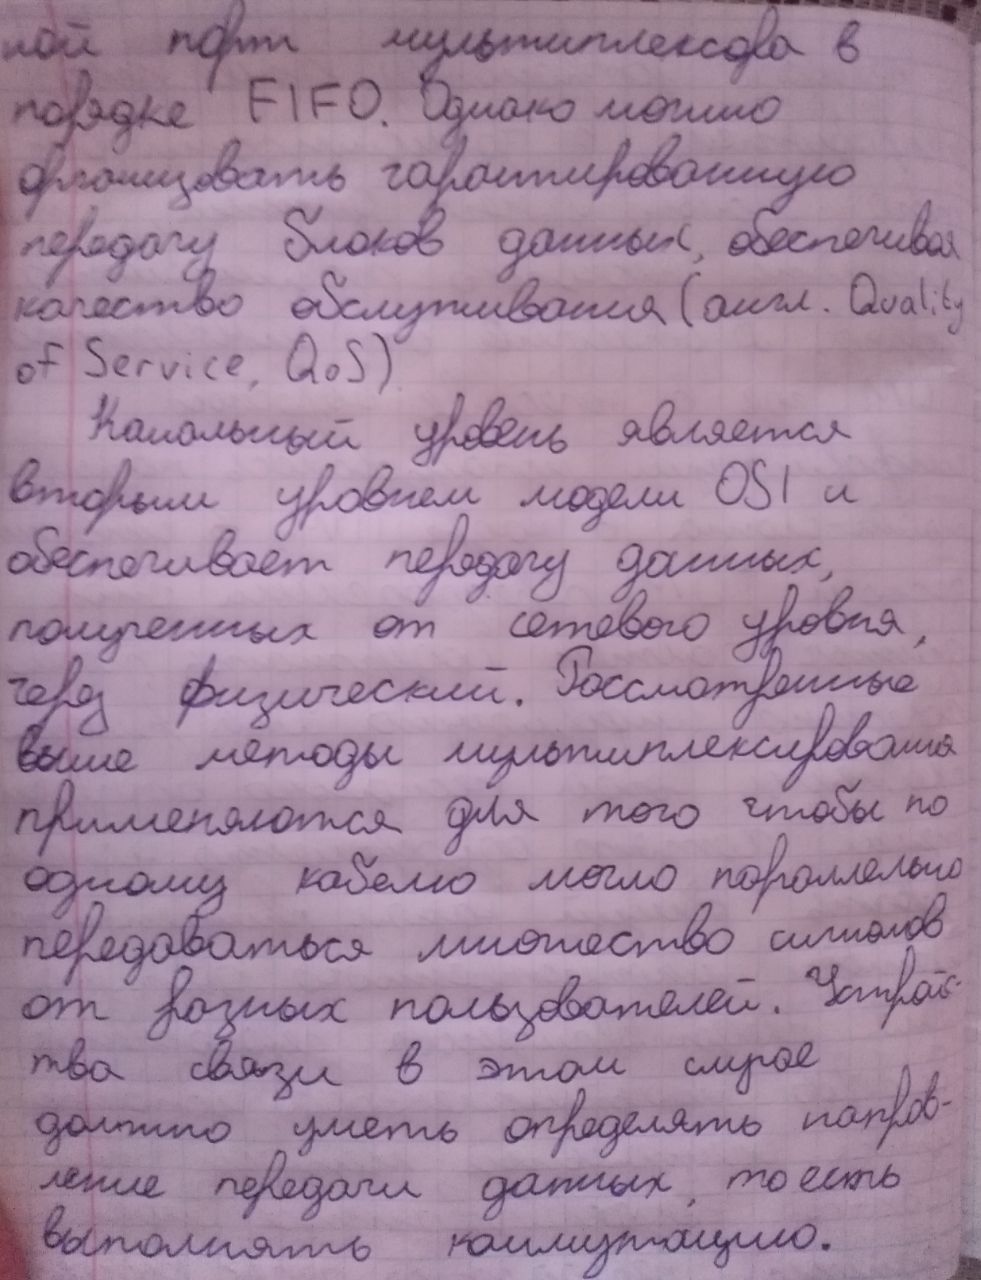 ной порт мультиплексора в
порядке FIFO. Однако можно
организовать гарантированную
передачу блоков данных, обеспечивая
качество обслуживания (англ. Quality
of Service, QoS)
Канальный уровень является
вторым уровнем модели OSI и
обеспечивает передачу данных,
полученных от сетевого уровня,
через физический. Рассмотренные
выше методы мультиплексирования
применяются для того чтобы по
одному кабелю могло параллельно
передаваться множество сигналов
от разных пользователей. Устройс-
тва связи в этом случае
должно уметь определять направ-
ление передачи данных, то есть
выполнять коммутацию.